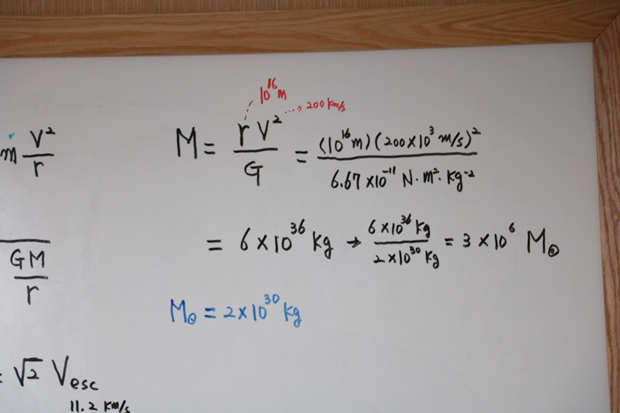 10¹⁶m
200 km/s
m V²/r
M = rV²/G = (10¹⁶m)(200×10³ m/s)²/6.67×10⁻¹¹ N·m²·kg⁻²
= 6×10³⁶ kg → 6×10³⁶ kg/2×10³⁰ kg = 3×10⁶ M☉
GM/r
M☉ = 2×10³⁰ kg
= √2 Vesc
11.2 km/s